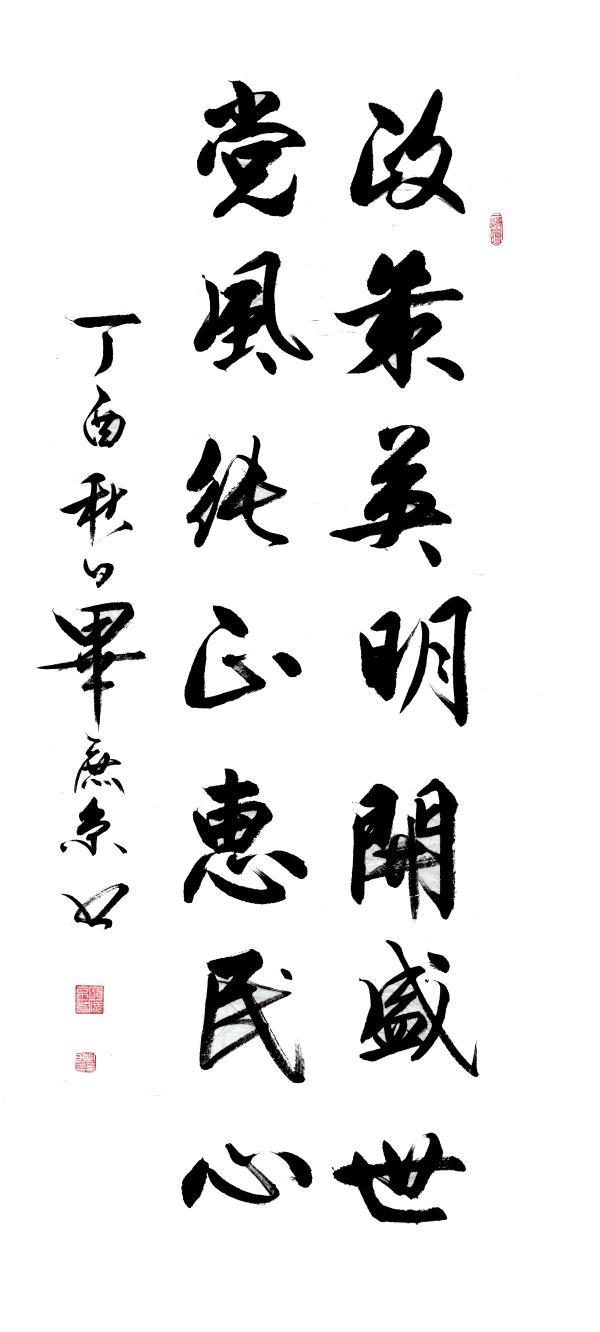 政策英明開盛世
党風純正惠民心
丁酉秋日畢庶京书